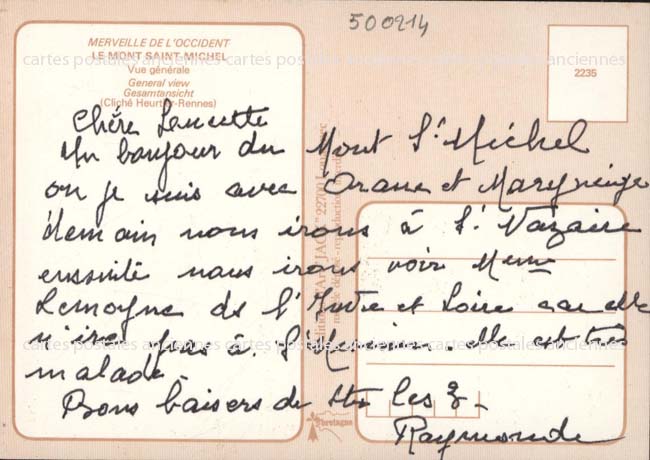 500214
MERVEILLE DE L'OCCIDENT
LE MONT SAINT-MICHEL
Vue générale
General view
Gesamtansicht
(Cliché Heurtier-Rennes)
2235
cartes postales anciennes cartes postales anciennes cartes postales anciennes
Chère Lucette
Un bonjour du Mont St Michel
ou je suis avec Orane et Maryneige
demain nous irons à St Nazaire
ensuite nous irons voir Mme
Lemoyne de l'Indre et Loire car elle
n'ira pas à elle est très
malade
Bons baisers de les 3
Raymonde
cartes postales anciennes cartes postales anciennes cartes postales anciennes
Bretagne